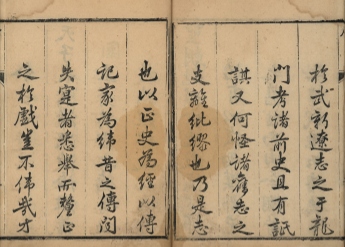 於武新遼志之于龍
門考諸前史且有詆
諆又何怪諸舊志之
支離紕繆也乃是志
也以正史為經以傳
記家為緯昔之傳聞
失寔者悉舉而釐正
之於戲豈不偉哉才